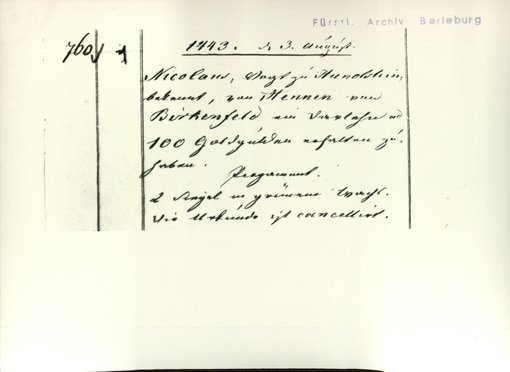 Fürstl. Archiv Berleburg
760
1443. d 3. August.
Nicolaus, Vogt zu Hunolstein,
bekennt, von Hennen von
Birkenfeld ein Darlehn ad
100 Goldgulden erhalten zu
haben.
Pergament.
2 Siegel in grünem Wachs.
Die Urkunde ist cancellirt.